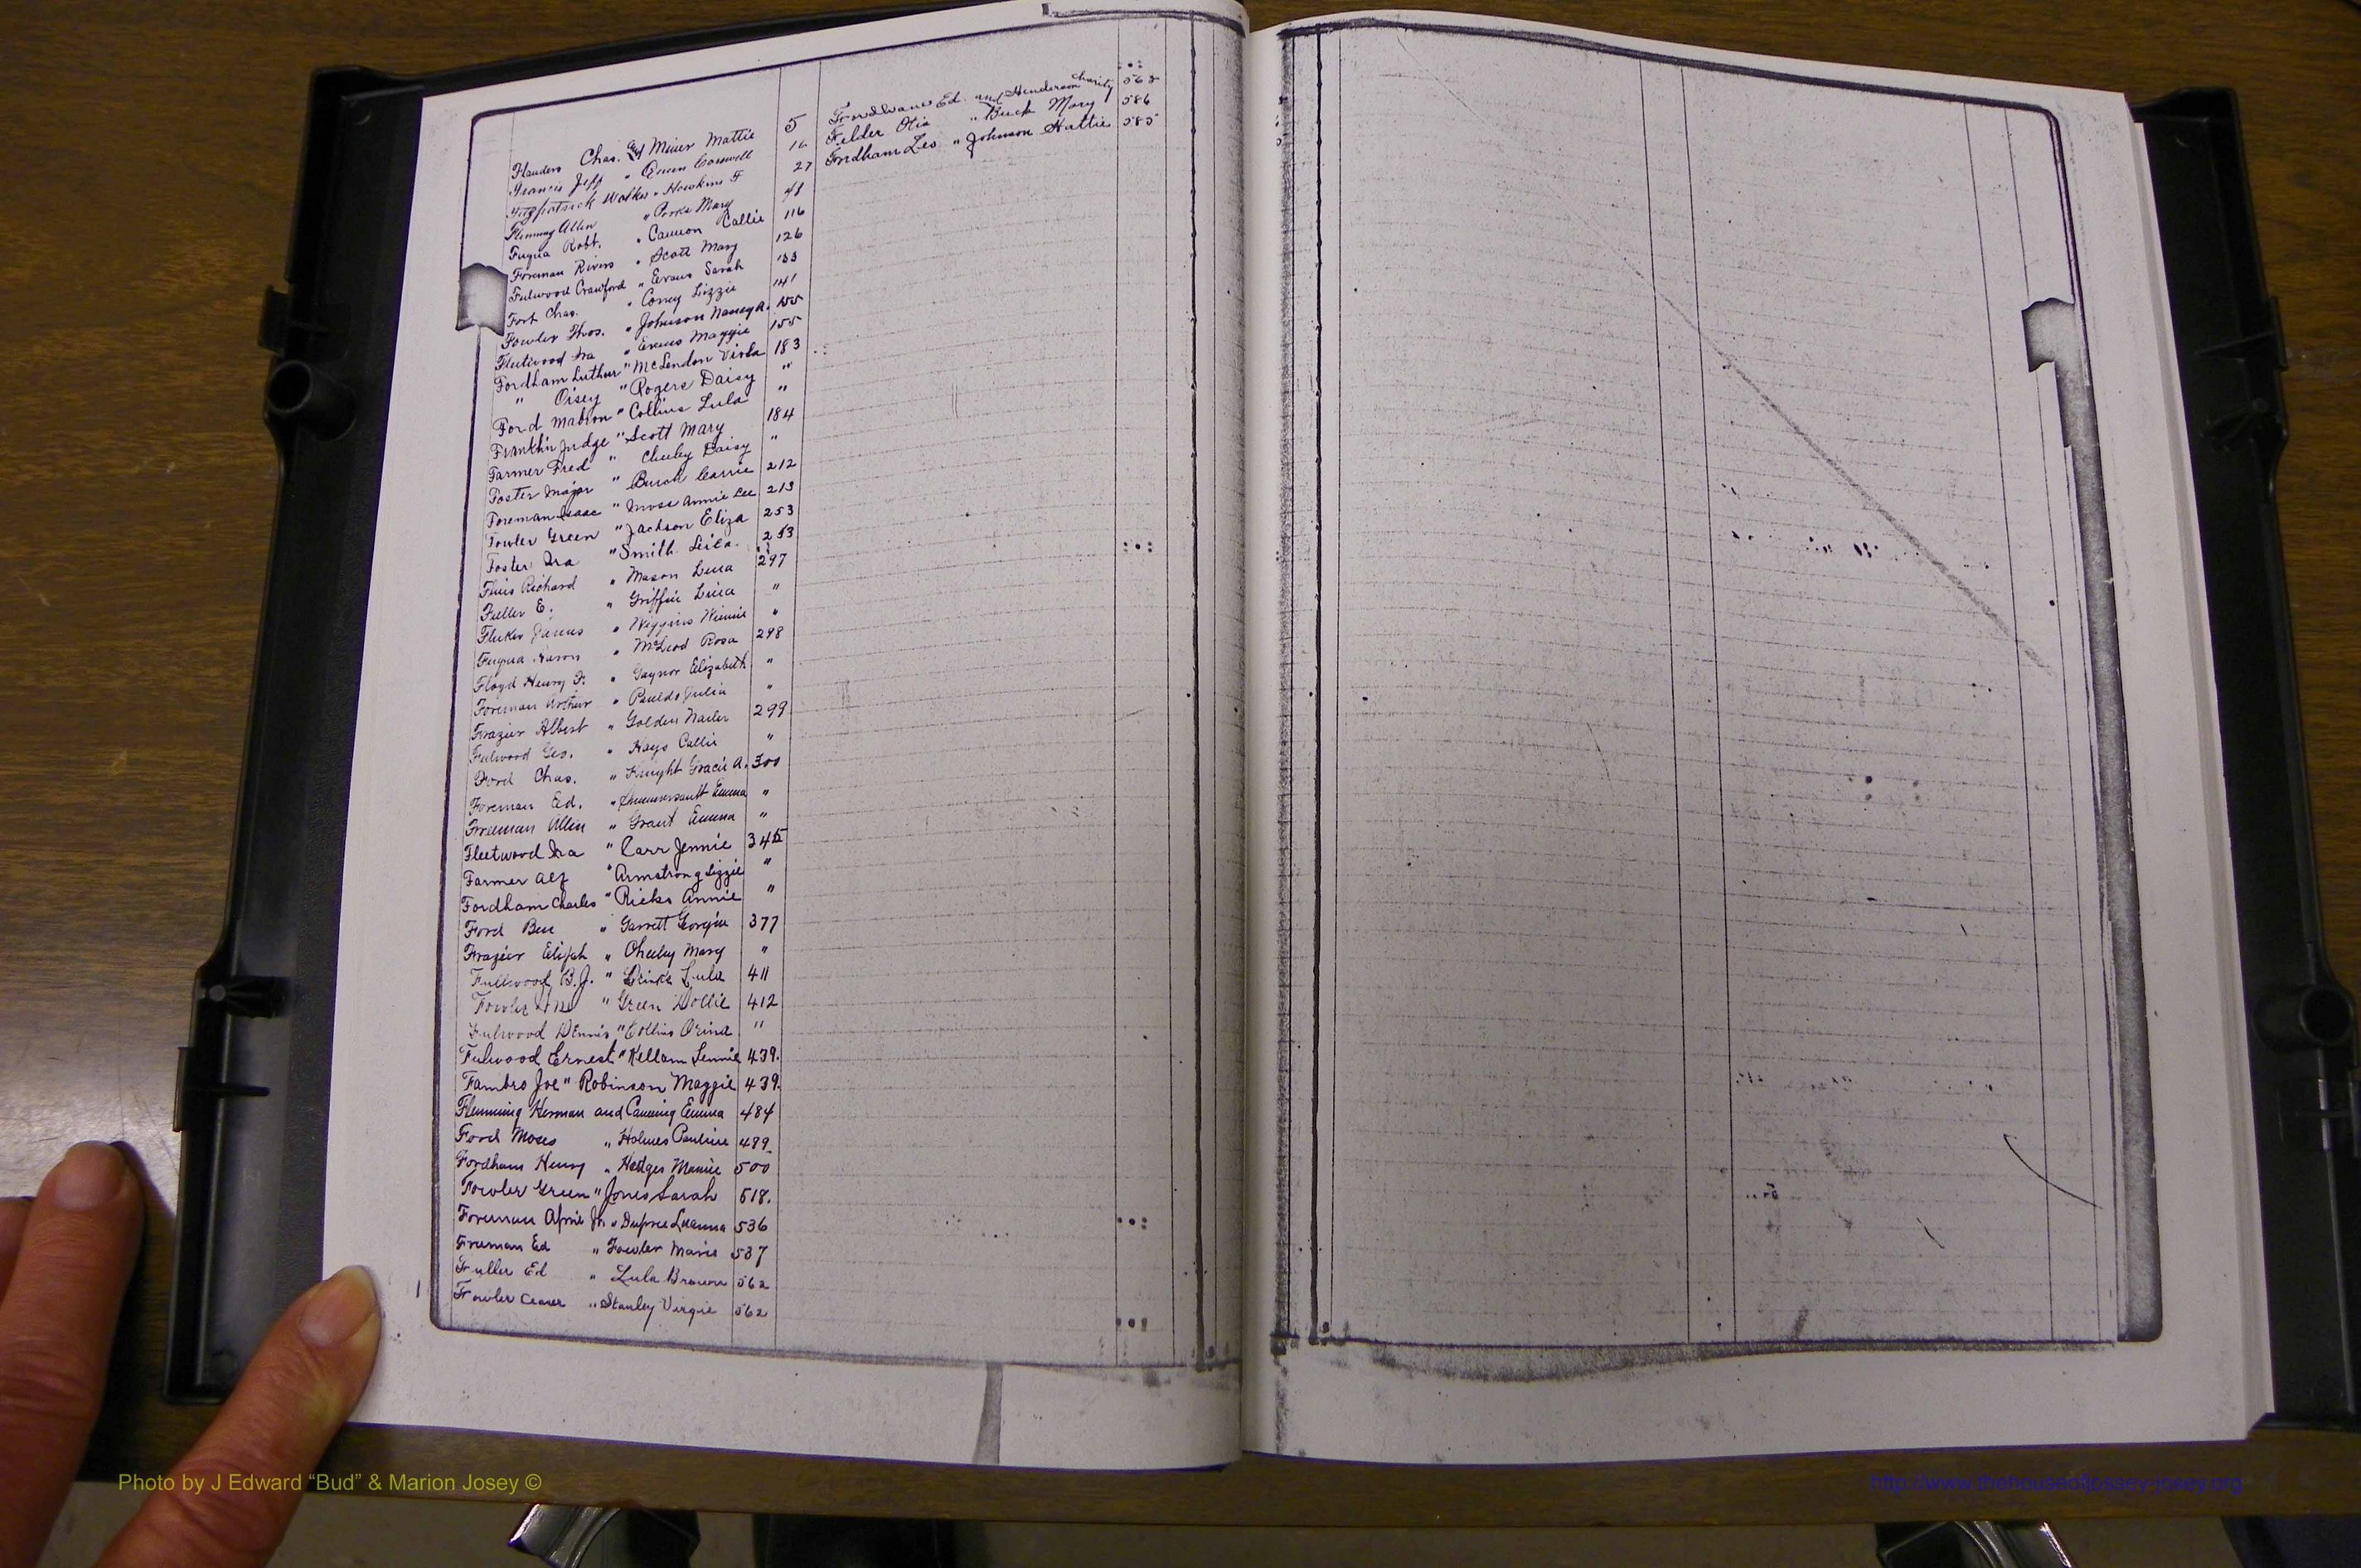 Flanders Chas. and Minor Mattie 5
Francis Jeff " Queen 16
Fitzpatrick Walker " Hawkins F 27
Flemming Allen " Mary 48
Fuqua Robt. " Cannon Callie 116
Foreman Rivers " Scott Mary 126
Fulwood Crawford " Evans Sarah 133
Fort Chas. " Lizzie 141
Fowler Thos. " Johnson Nancy A. 155
Fleetwood Ira " Evans Maggie 155
Fordham Luthur " McLendon Vista 183
" Orsey " Rogers Daisy "
Ford " Collins Lula "
Franklin Judge " Scott Mary 184
Farmer Fred " Cheeley Daisy "
Foster Major " Carrie 212
Foreman Isaac " Annie Lee 213
Fowler Green " Jackson Eliza 253
Foster Ira " Smith Leila. 253
Richard " Mason Lena 297
Fuller E. " Griffin "
Fluker " Wiggins Winnie "
Fuqua " McLeod Rosa 298
Floyd Henry F. " Gaynor Elizabeth "
Foreman Arthur " Julia "
Frazier Albert " Golden 299
Fulwood Geo. " Hays Callie "
Ford Chas. " Knight Gracie A. 300
Foreman Ed. " Emma "
Freeman Allen " Grant Emma "
Fleetwood Ira " Carr Jennie 345
Farmer Alf " Armstrong Lizzie "
Fordham Charles " Ricks Annie "
Ford Ben " Garrett Georgia 377
Frazier Elijah " Cheeley Mary "
Fullwood B.J. " Lula 411
Fowler " Green Dollie 412
Fulwood Dennis " Collins "
Fulwood Ernest " Kellam Lennie 439.
Fambro Joe " Robinson Maggie 439.
Flemming Herman and Canning Emma 484
Ford Moses " Holmes Pauline 489
Fordham Henry " Hodges Mamie 500
Fowler Green " Jones Sarah 518.
Foreman Jr. " Dupree Luanna 536
Freeman Ed " Fowler Marie 537
Fuller Ed " Lula Brown 562
Fowler " Stanley Virgie 562
Ed. and Henderson Charity 563
Felder Otis " Buck Mary 586
Fordham Leo " Johnson Hattie 585
Photo by J Edward “Bud” & Marion Josey ©
http://www.thehouseofjossey-josey.org